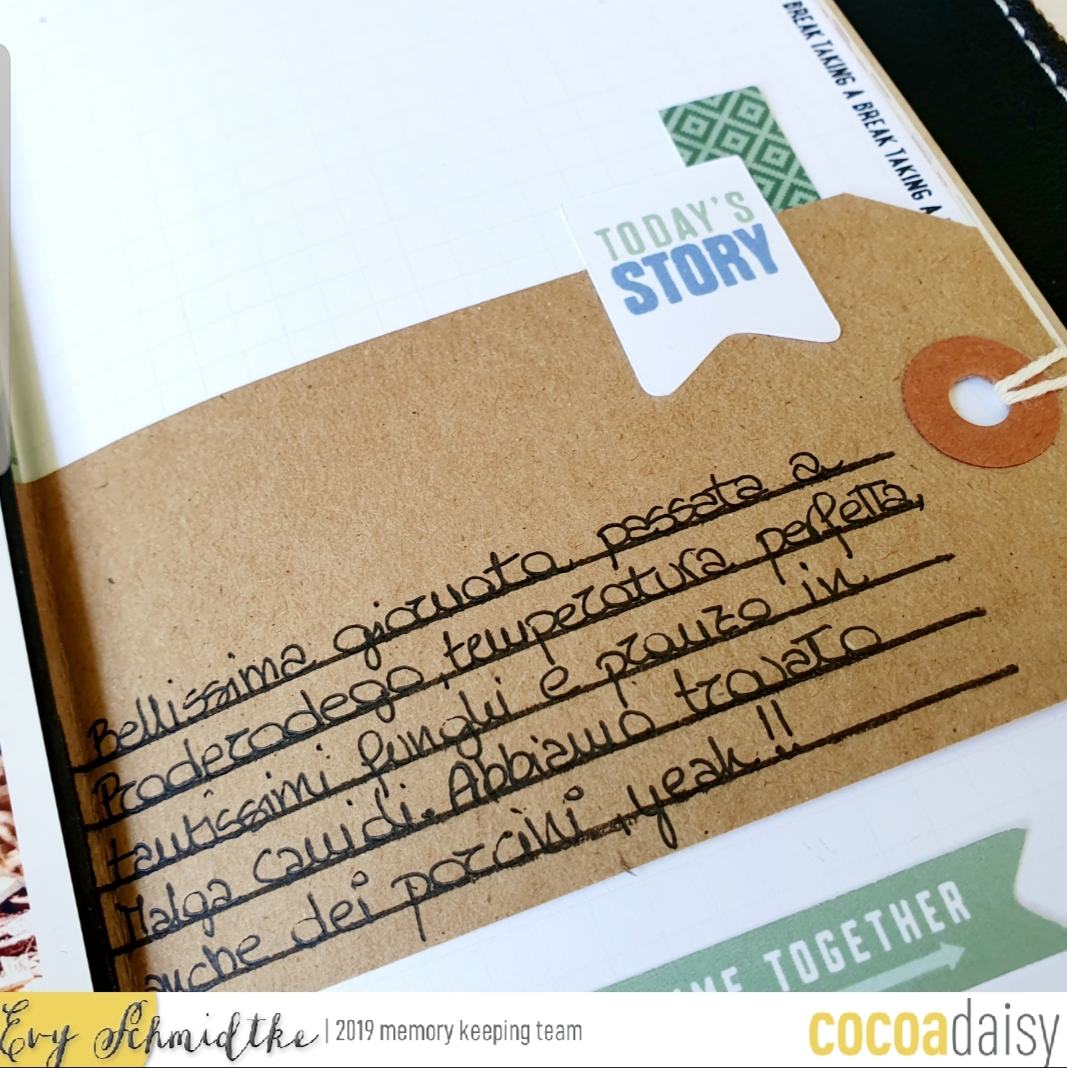 BREAK TAKING A BREAK TAKING A
TODAY'S
STORY
Bellissima giornata passata a
Proderodego, temperatura perfetta,
tantissimi funghi e pranzo in
Malga Candidi. Abbiamo trovato
anche dei porcini, yeah!!
TOGETHER
Evy Schmidtke | 2019 memory keeping team
cocoadaisy